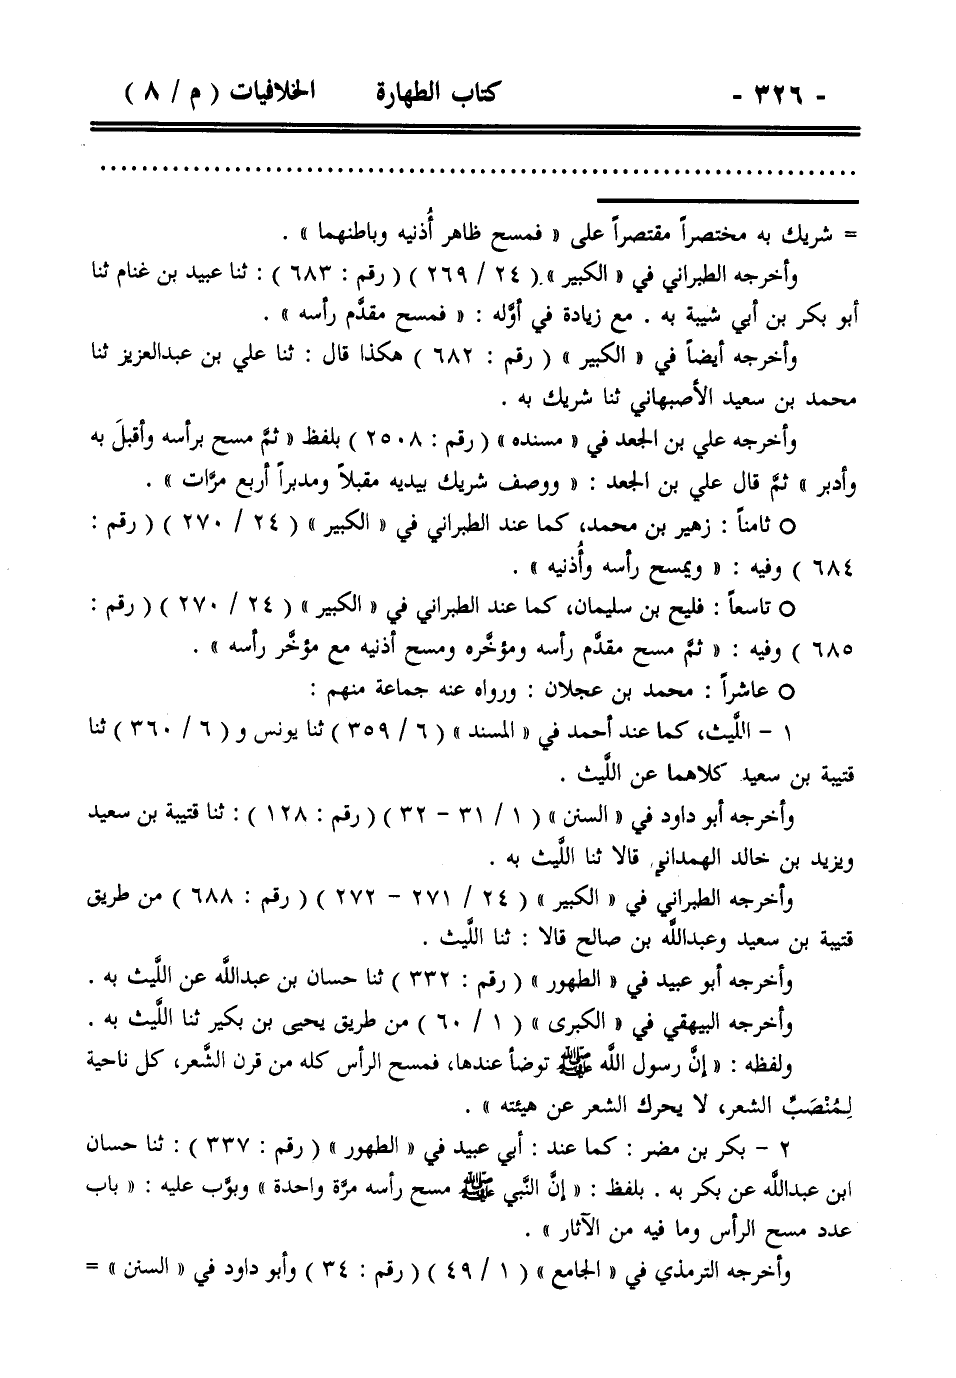 - ٣٢٦ - كتاب الطهارة الخلافيات ( م / ٨ )
................................................................................
= شريك به مختصراً مقتصراً على « فمسح ظاهر أُذنيه وباطنهما » .
وأخرجه الطبراني في « الكبير » ( ٢٤ / ٢٦٩ ) ( رقم : ٦٨٣ ) : ثنا عبيد بن غنام ثنا
أبو بكر بن أبي شيبة به . مع زيادة في أوَّله : « فمسح مقدَّم رأسه » .
وأخرجه أيضاً في « الكبير » ( رقم : ٦٨٢ ) هكذا قال : ثنا علي بن عبدالعزيز ثنا
محمد بن سعيد الأصبهاني ثنا شريك به .
وأخرجه علي بن الجعد في « مسنده » ( رقم : ٢٥٠٨ ) بلفظ « ثمَّ مسح برأسه وأقبلَ به
وأدبر » ثمَّ قال علي بن الجعد : « ووصف شريك بيديه مقبلاً ومدبراً أربع مرَّات » .
○ ثامناً : زهير بن محمد، كما عند الطبراني في « الكبير » ( ٢٤ / ٢٧٠ ) ( رقم :
٦٨٤ ) وفيه : « ويمسح رأسه وأُذنيه » .
○ تاسعاً : فليح بن سليمان، كما عند الطبراني في « الكبير » ( ٢٤ / ٢٧٠ ) ( رقم :
٦٨٥ ) وفيه : « ثمَّ مسح مقدَّم رأسه ومؤخَّره ومسح أذنيه مع مؤخَّر رأسه » .
○ عاشراً : محمد بن عجلان : ورواه عنه جماعة منهم :
١ - اللَّيث، كما عند أحمد في « المسند » ( ٦ / ٣٥٩ ) ثنا يونس و ( ٦ / ٣٦٠ ) ثنا
قتيبة بن سعيد كلاهما عن اللَّيث .
وأخرجه أبو داود في « السنن » ( ١ / ٣١ - ٣٢ ) ( رقم : ١٢٨ ) : ثنا قتيبة بن سعيد
ويزيد بن خالد الهمداني قالا ثنا اللَّيث به .
وأخرجه الطبراني في « الكبير » ( ٢٤ / ٢٧١ - ٢٧٢ ) ( رقم : ٦٨٨ ) من طريق
قتيبة بن سعيد وعبداللَّه بن صالح قالا : ثنا اللَّيث .
وأخرجه أبو عبيد في « الطهور » ( رقم : ٣٣٢ ) ثنا حسان بن عبداللَّه عن اللَّيث به .
وأخرجه البيهقي في « الكبرى » ( ١ / ٦٠ ) من طريق يحيى بن بكير ثنا اللَّيث به .
ولفظه : « إنَّ رسول اللَّه ﷺ توضأ عندها، فمسح الرأس كله من قرن الشَّعر، كل ناحية
لِمُنْصَبِّ الشعر، لا يحرك الشعر عن هيئته » .
٢ - بكر بن مضر : كما عند : أبي عبيد في « الطهور » ( رقم : ٣٣٧ ) : ثنا حسان
ابن عبداللَّه عن بكر به . بلفظ : « إنَّ النَّبي ﷺ مسح رأسه مرَّة واحدة » وبوَّب عليه : « باب
عدد مسح الرأس وما فيه من الآثار » .
وأخرجه الترمذي في « الجامع » ( ١ / ٤٩ ) ( رقم : ٣٤ ) وأبو داود في « السنن » =